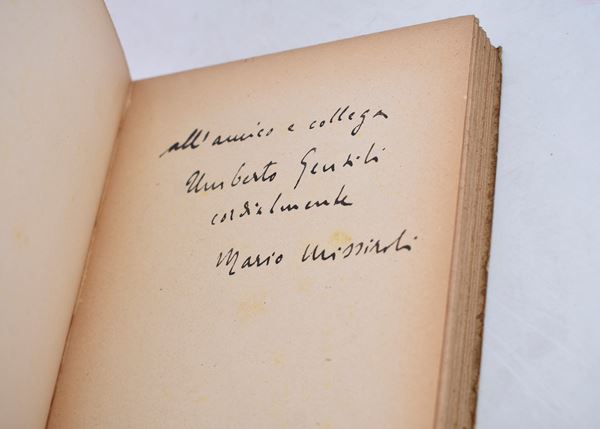 all'amico e collega
Umberto Gentili
cordialmente
Mario Missiroli